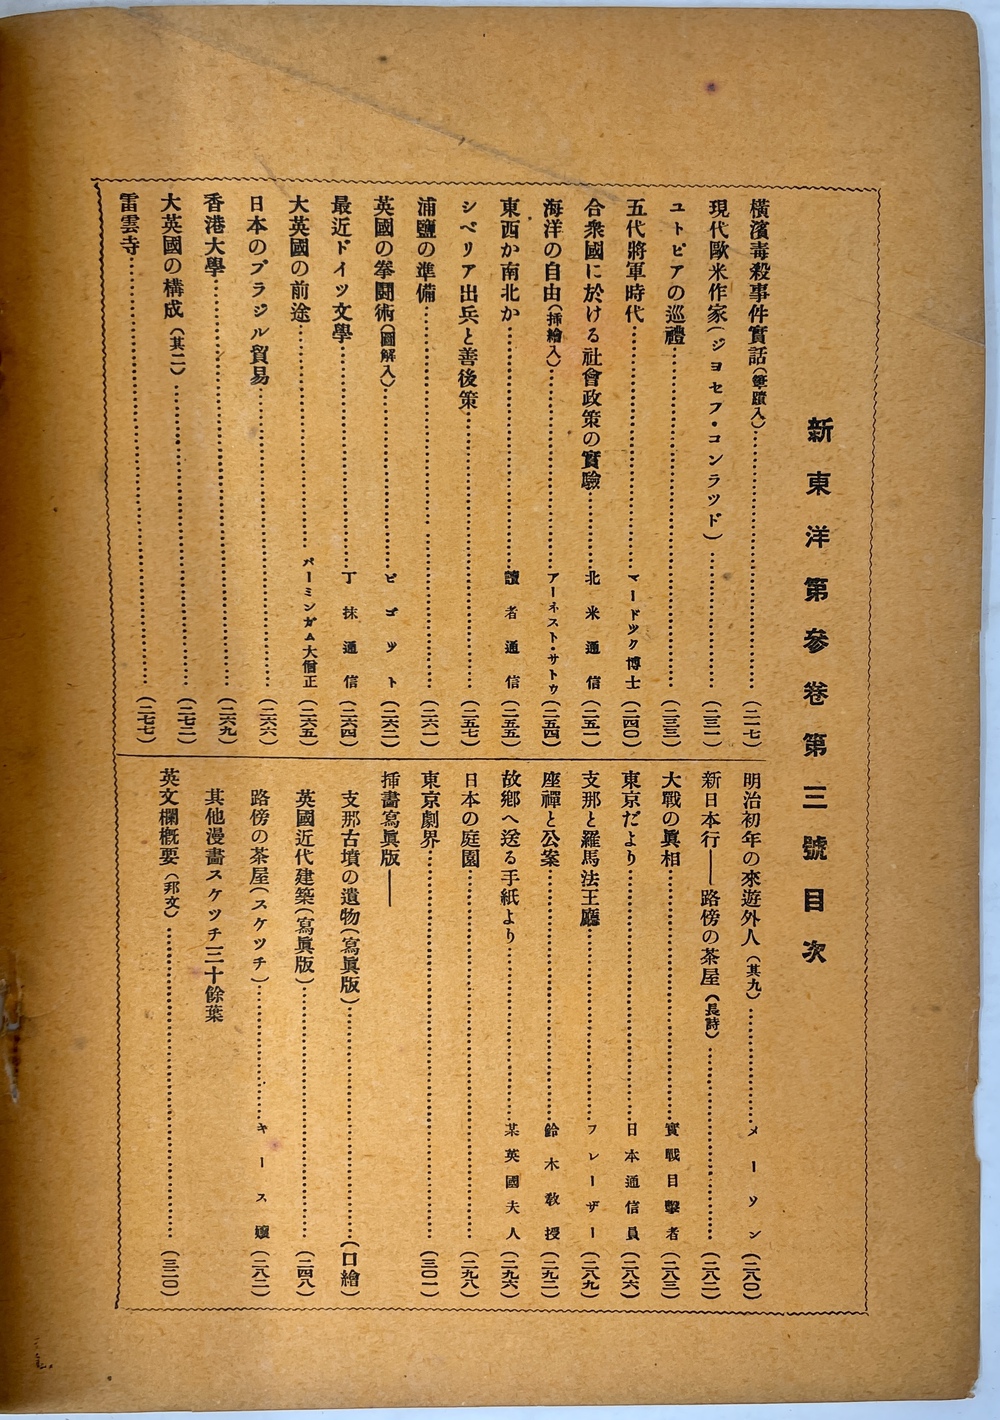 新東洋第參卷第三號目次
橫濱毒殺事件實話(筆蹟入)……(二一七)
現代歐米作家(ジヨセフ・コンラツド)……(二三一)
ユトピアの巡禮……(二三三)
五代將軍時代……マードツク博士(二四〇)
合衆國に於ける社會政策の實驗……北米通信(二五一)
海洋の自由(揷繪入)……アーネスト・サトウ(二五四)
東西か南北か……讀者通信(二五五)
シベリア出兵と善後策……(二五七)
浦鹽の準備……(二六一)
英國の拳鬪術(圖解入)……ピゴツト(二六二)
最近ドイツ文學……丁抹通信(二六四)
大英國の前途……バーミンガム大僧正(二六五)
日本のブラジル貿易……(二六六)
香港大學……(二六九)
大英國の構成(其二)……(二七二)
雷雲寺……(二七七)
明治初年の來遊外人(其九)……メーソン(二八〇)
新日本行——路傍の茶屋(長詩)……(二八二)
大戰の眞相……實戰目擊者(二八三)
東京だより……日本通信員(二八六)
支那と羅馬法王廳……フレーザー(二八九)
座禪と公案……鈴木敎授(二九二)
故鄕へ送る手紙より……某英國夫人(二九六)
日本の庭園……(二九八)
東京劇界……(三〇一)
揷畫寫眞版——
支那古墳の遺物(寫眞版)……(口繪)
英國近代建築(寫眞版)……(二四八)
路傍の茶屋(スケツチ)……キース孃(二八二)
其他漫畵スケツチ三十餘葉
英文欄槪要(邦文)……(三二〇)